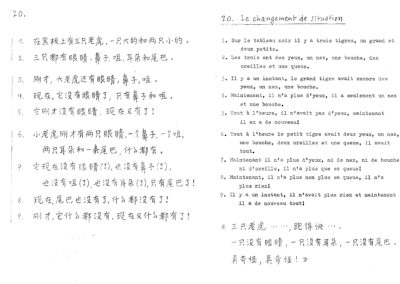 20.
1. 在黑板上有三只老虎，一只大的和两只小的。
2. 三只都有眼睛，鼻子，咀，耳朵和尾巴。
3. 刚才，大老虎还有眼睛，鼻子，咀。
4. 现在，它没有眼睛了，只有鼻子和咀。
5. 它刚才没有眼睛，现在又有了！
6. 小老虎刚才有两只眼睛，一个鼻子，一个咀，
两只耳朵和一条尾巴，什么都有。
7. 它现在没有眼睛(了)，也没有鼻子(了)，
也没有咀(了)，也没有耳朵(了)，只有尾巴了！
8. 现在，尾巴也没有了，什么都没有了！
9. 刚才，它什么都没有，现在又什么都有了！
20. Le changement de situation
1. Sur le tableau noir il y a trois tigres, un grand et
deux petits.
2. Les trois ont des yeux, un nez, une bouche, des
oreilles et une queue.
3. Il y a un instant, le grand tigre avait encore des
yeux, un nez, une bouche.
4. Maintenant, il n'a plus d'yeux, il a seulement un nez
et une bouche.
5. Tout à l'heure, il n'avait pas d'yeux, maintenant
il en a de nouveau!
6. Tout à l'heure le petit tigre avait deux yeux, un nez,
une bouche, deux oreilles et une queue, il avait
tout.
7. Maintenant il n'a plus d'yeux, ni de nez, ni de bouche
ni d'oreille, il n'a plus que sa queue!
8. Maintenant, il n'a plus non plus sa queue, il n'a
plus rien!
9. Il y a un instant, il n'avait plus rien et maintenant
il a de nouveau tout!
三只老虎……，跑得快…，
一只没有眼睛，一只没有耳朵，一只没有尾巴，
真奇怪，真奇怪！